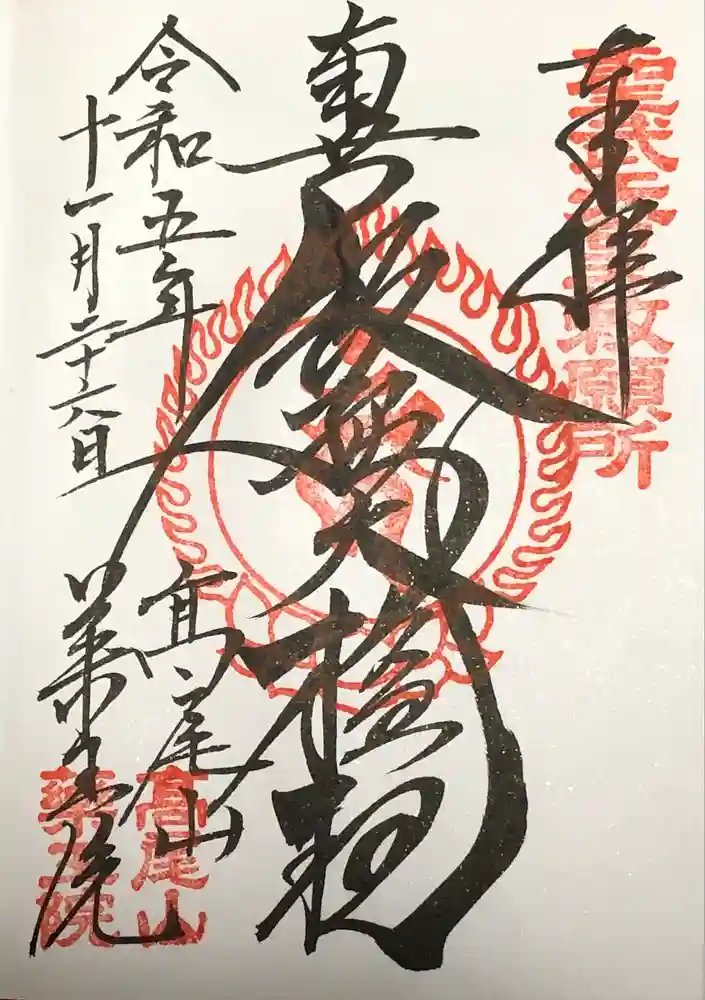 奉拝
聖武天皇勅願所
南無飯縄大権現
令和五年
十一月二十六日
高尾山
薬王院
高尾山
薬王院